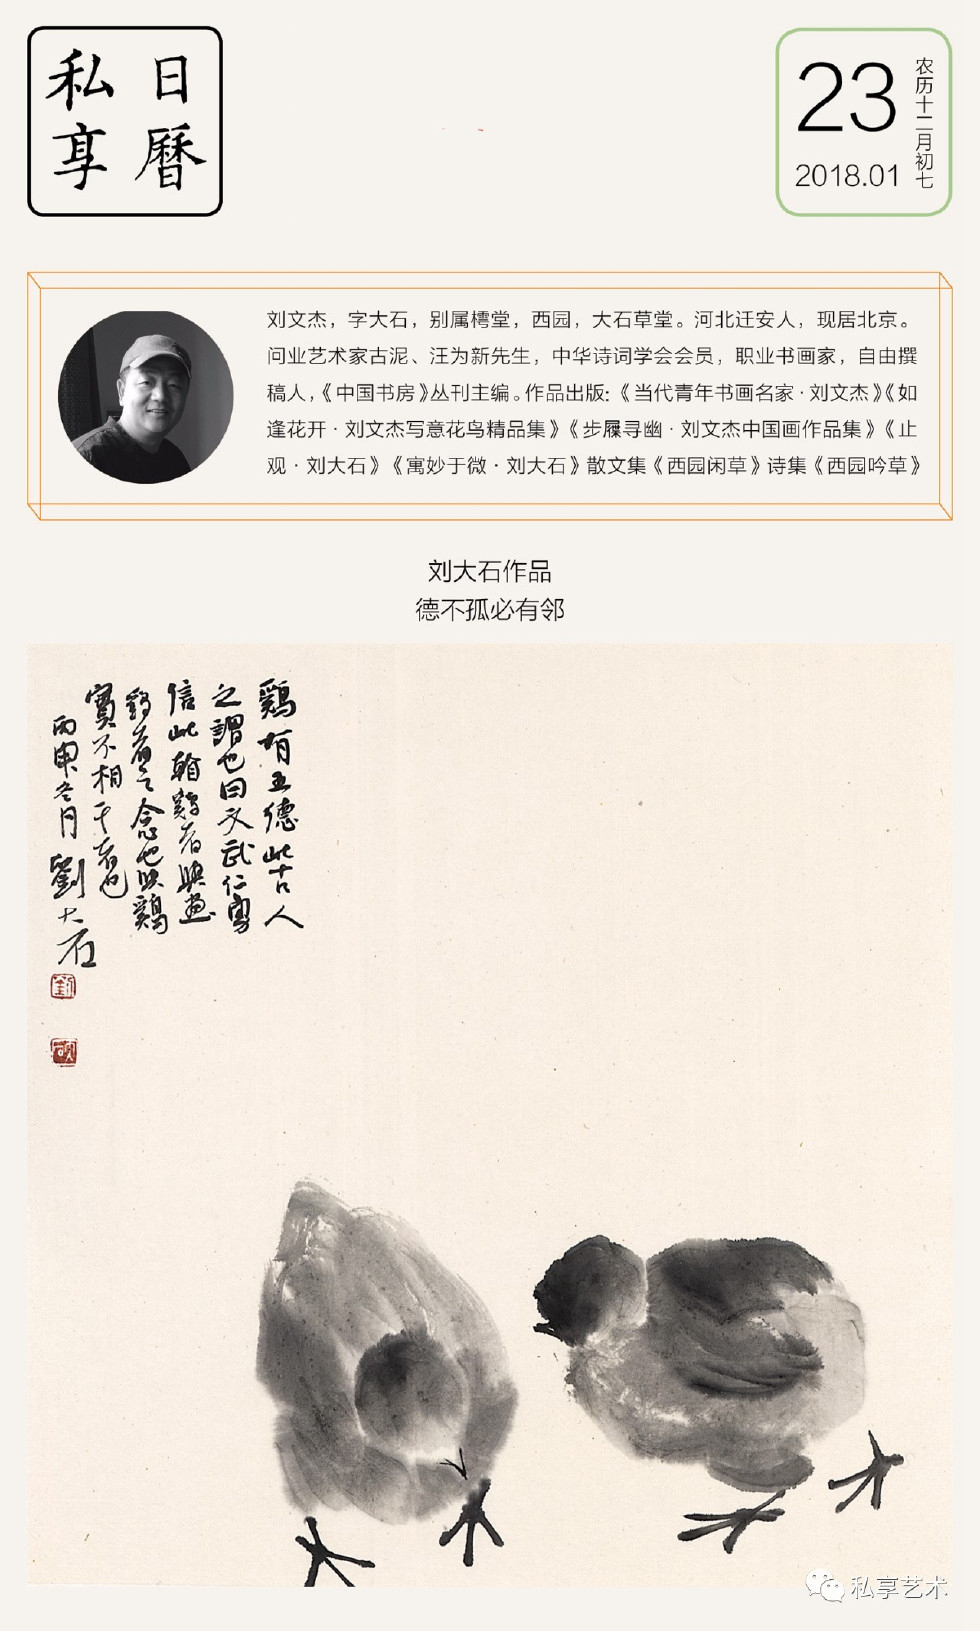 私享
日曆
23
2018.01
农历十二月初七
刘文杰，字大石，别属樗堂，西园，大石草堂。河北迁安人，现居北京。
问业艺术家古泥、汪为新先生，中华诗词学会会员，职业书画家，自由撰
稿人，《中国书房》丛刊主编。作品出版:《当代青年书画名家·刘文杰》《如
逢花开·刘文杰写意花鸟精品集》《步屧寻幽·刘文杰中国画作品集》《止
观·刘大石》《寓妙于微·刘大石》散文集《西园闲草》诗集《西园吟草》
刘大石作品
德不孤必有邻
鷄有五德此古人
之謂也曰文武仁勇
信此翰鷄者與畫
鷄者之念也與鷄
實不相干者也
丙申冬月劉大石
私享艺术